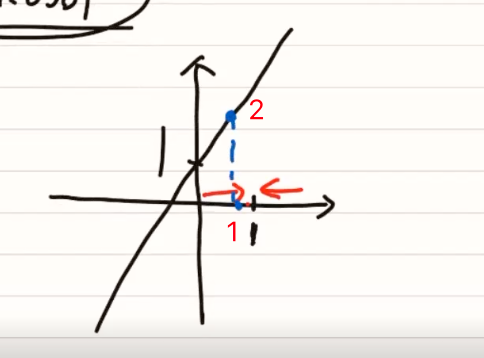 2
1
1 1